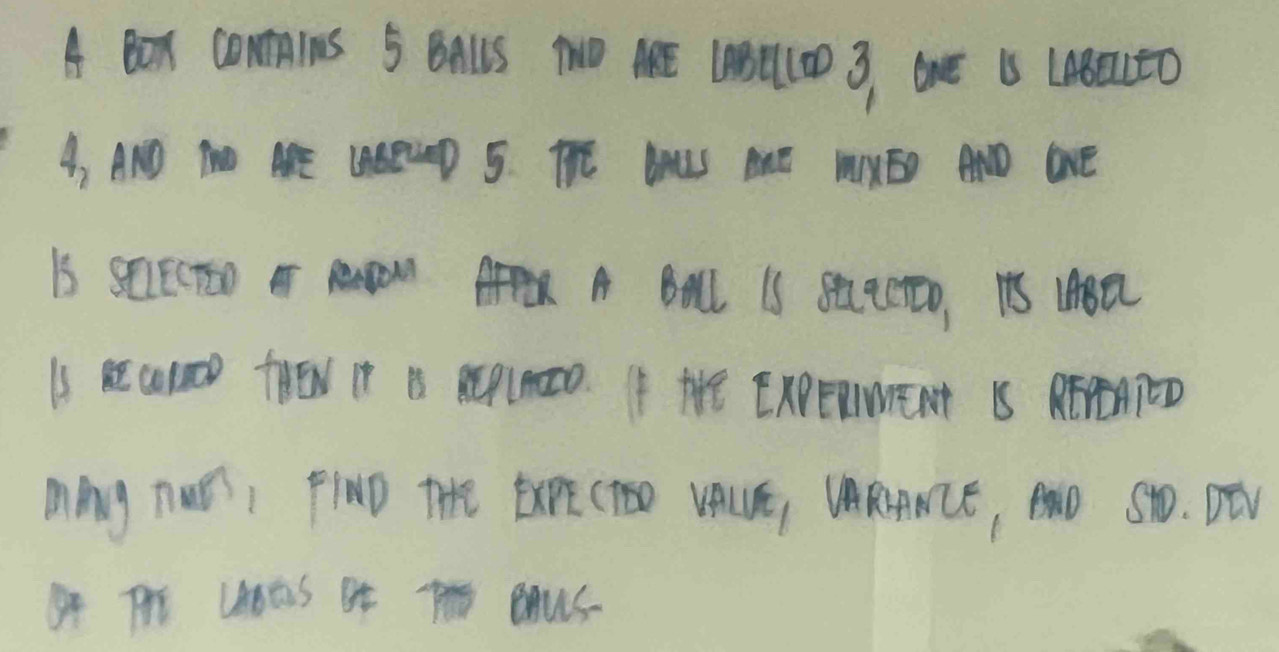 A BOX CONTAINS 5 BALLS TWO ARE LABELLED 3, ONE IS LABELLED
4, AND TWO ARE LABELLED 5. THE BALLS ARE MIXED AND ONE
IS SELECTED AT RANDOM AFTER A BALL IS SELECTED, ITS LABEL
IS RECORDED THEN IT IS REPLACED. IF THE EXPERIMENT IS REPEATED
MANY TIMES, FIND THE EXPECTED VALUE, VARIANCE, AND STD. DEV
OF THE LABELS OF THE BALLS.